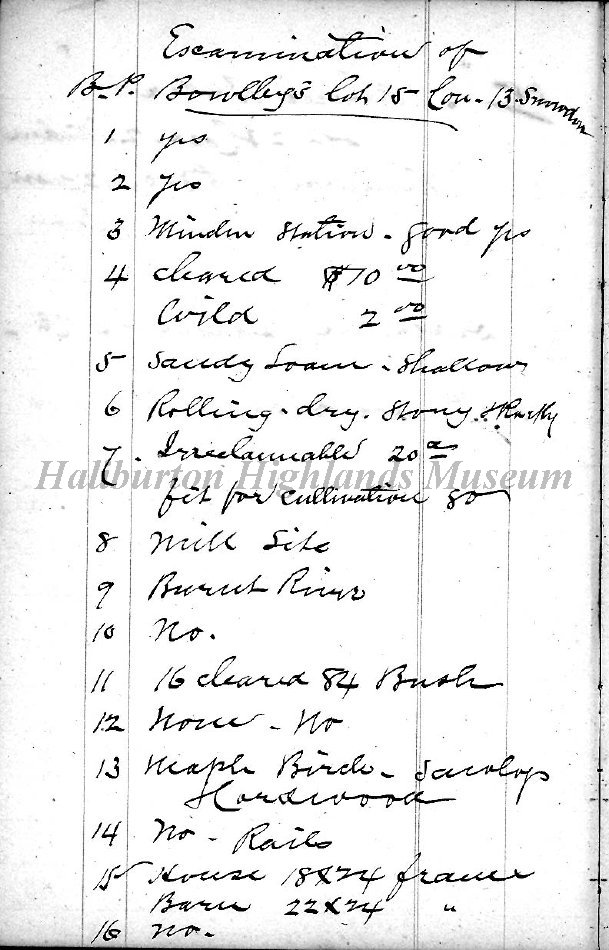 Examination of
B.P. Bowlley's Lot 15 Con. 13 Snowdon
1 yes
2 yes
3 Minden Station - good yes
4 cleared $10 00
Wild 2 00
5 Sandy Loam - Shallow
6 Rolling - dry. Stony.
7. Irreclaimable 20 a
Haliburton Highlands Museum
fit for cultivation 80
8 Mill Site
9 Burnt River
10 No.
11 16 cleared 84 Bush
12 None - No
13 Maple Birch -
Hardwood
14 No - Rails
15 House 18x24 frame
Barn 22x24 "
16 No.